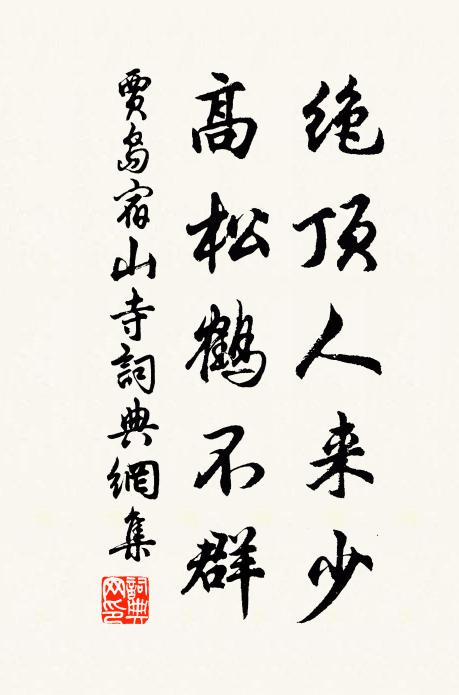 绝顶人来少
高松鹤不群
賈島宿山寺詞典網集
詞典
网印